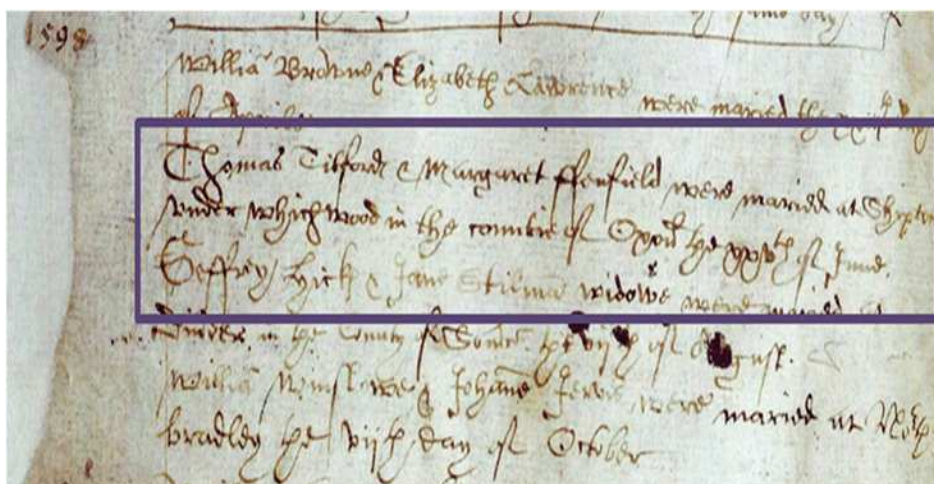 1598
Willia Browne & Elizabeth Lawrence were maried the
of Aprile
Thomas Tilford & Margaret ffenfield were maried at Shipton
vnder whichwood in the countie of Oxon the xxvth of June.
Jeffrey Hick & Jane Stilma widowe were maried at
in the County of the vijth of August.
Willia Winslowe & Johane Jervis were maried at
bradley the vijth day of October